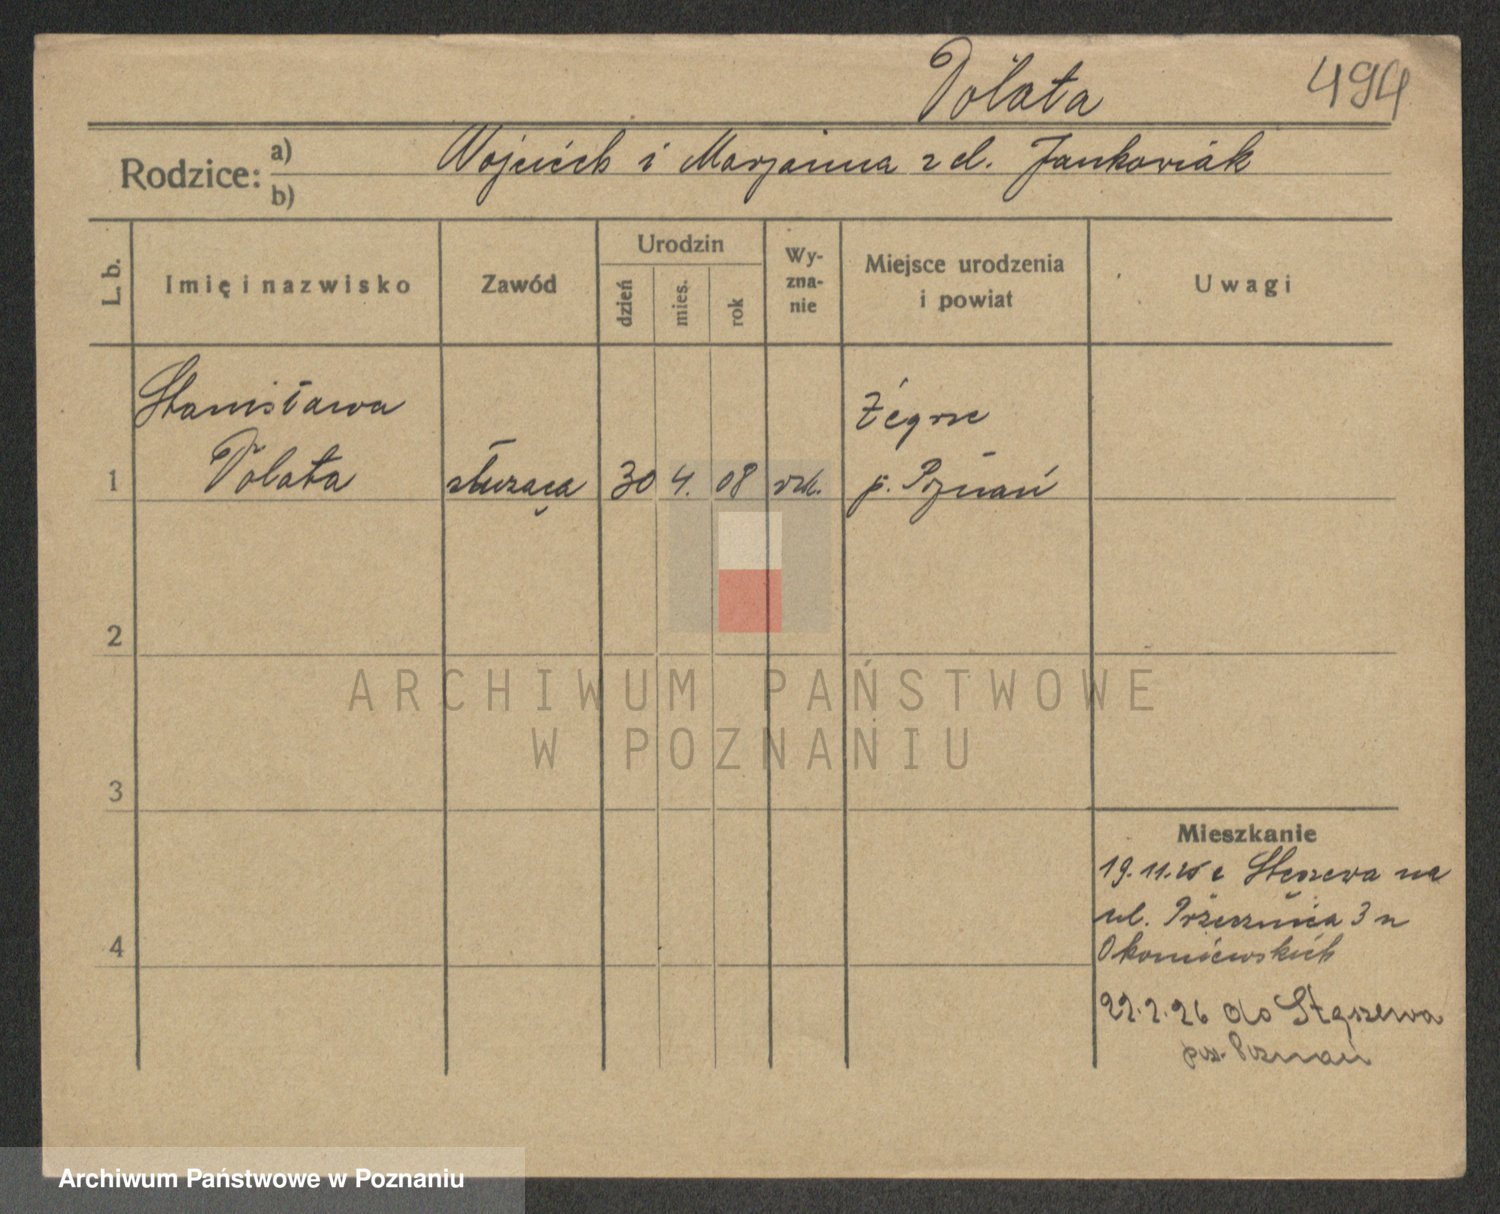 Dolata
494
Rodzice: a) Wojciech i Marjanna z d. Jankowiak
b)
L. b.
Imię i nazwisko
Zawód
Urodzin
dzień
mies.
rok
Wy-
zna-
nie
Miejsce urodzenia
i powiat
Uwagi
1
Stanisława
Dolata
służąca
30
4.
08
rzk.
Żegrze
p. Poznań
2
3
4
Mieszkanie
19.11.25 z Stęszewa na
ul. 3 u
Okoniewskich
22.2.26 do Stęszewa
pow. Poznań
ARCHIWUM PAŃSTWOWE
W POZNANIU
Archiwum Państwowe w Poznaniu